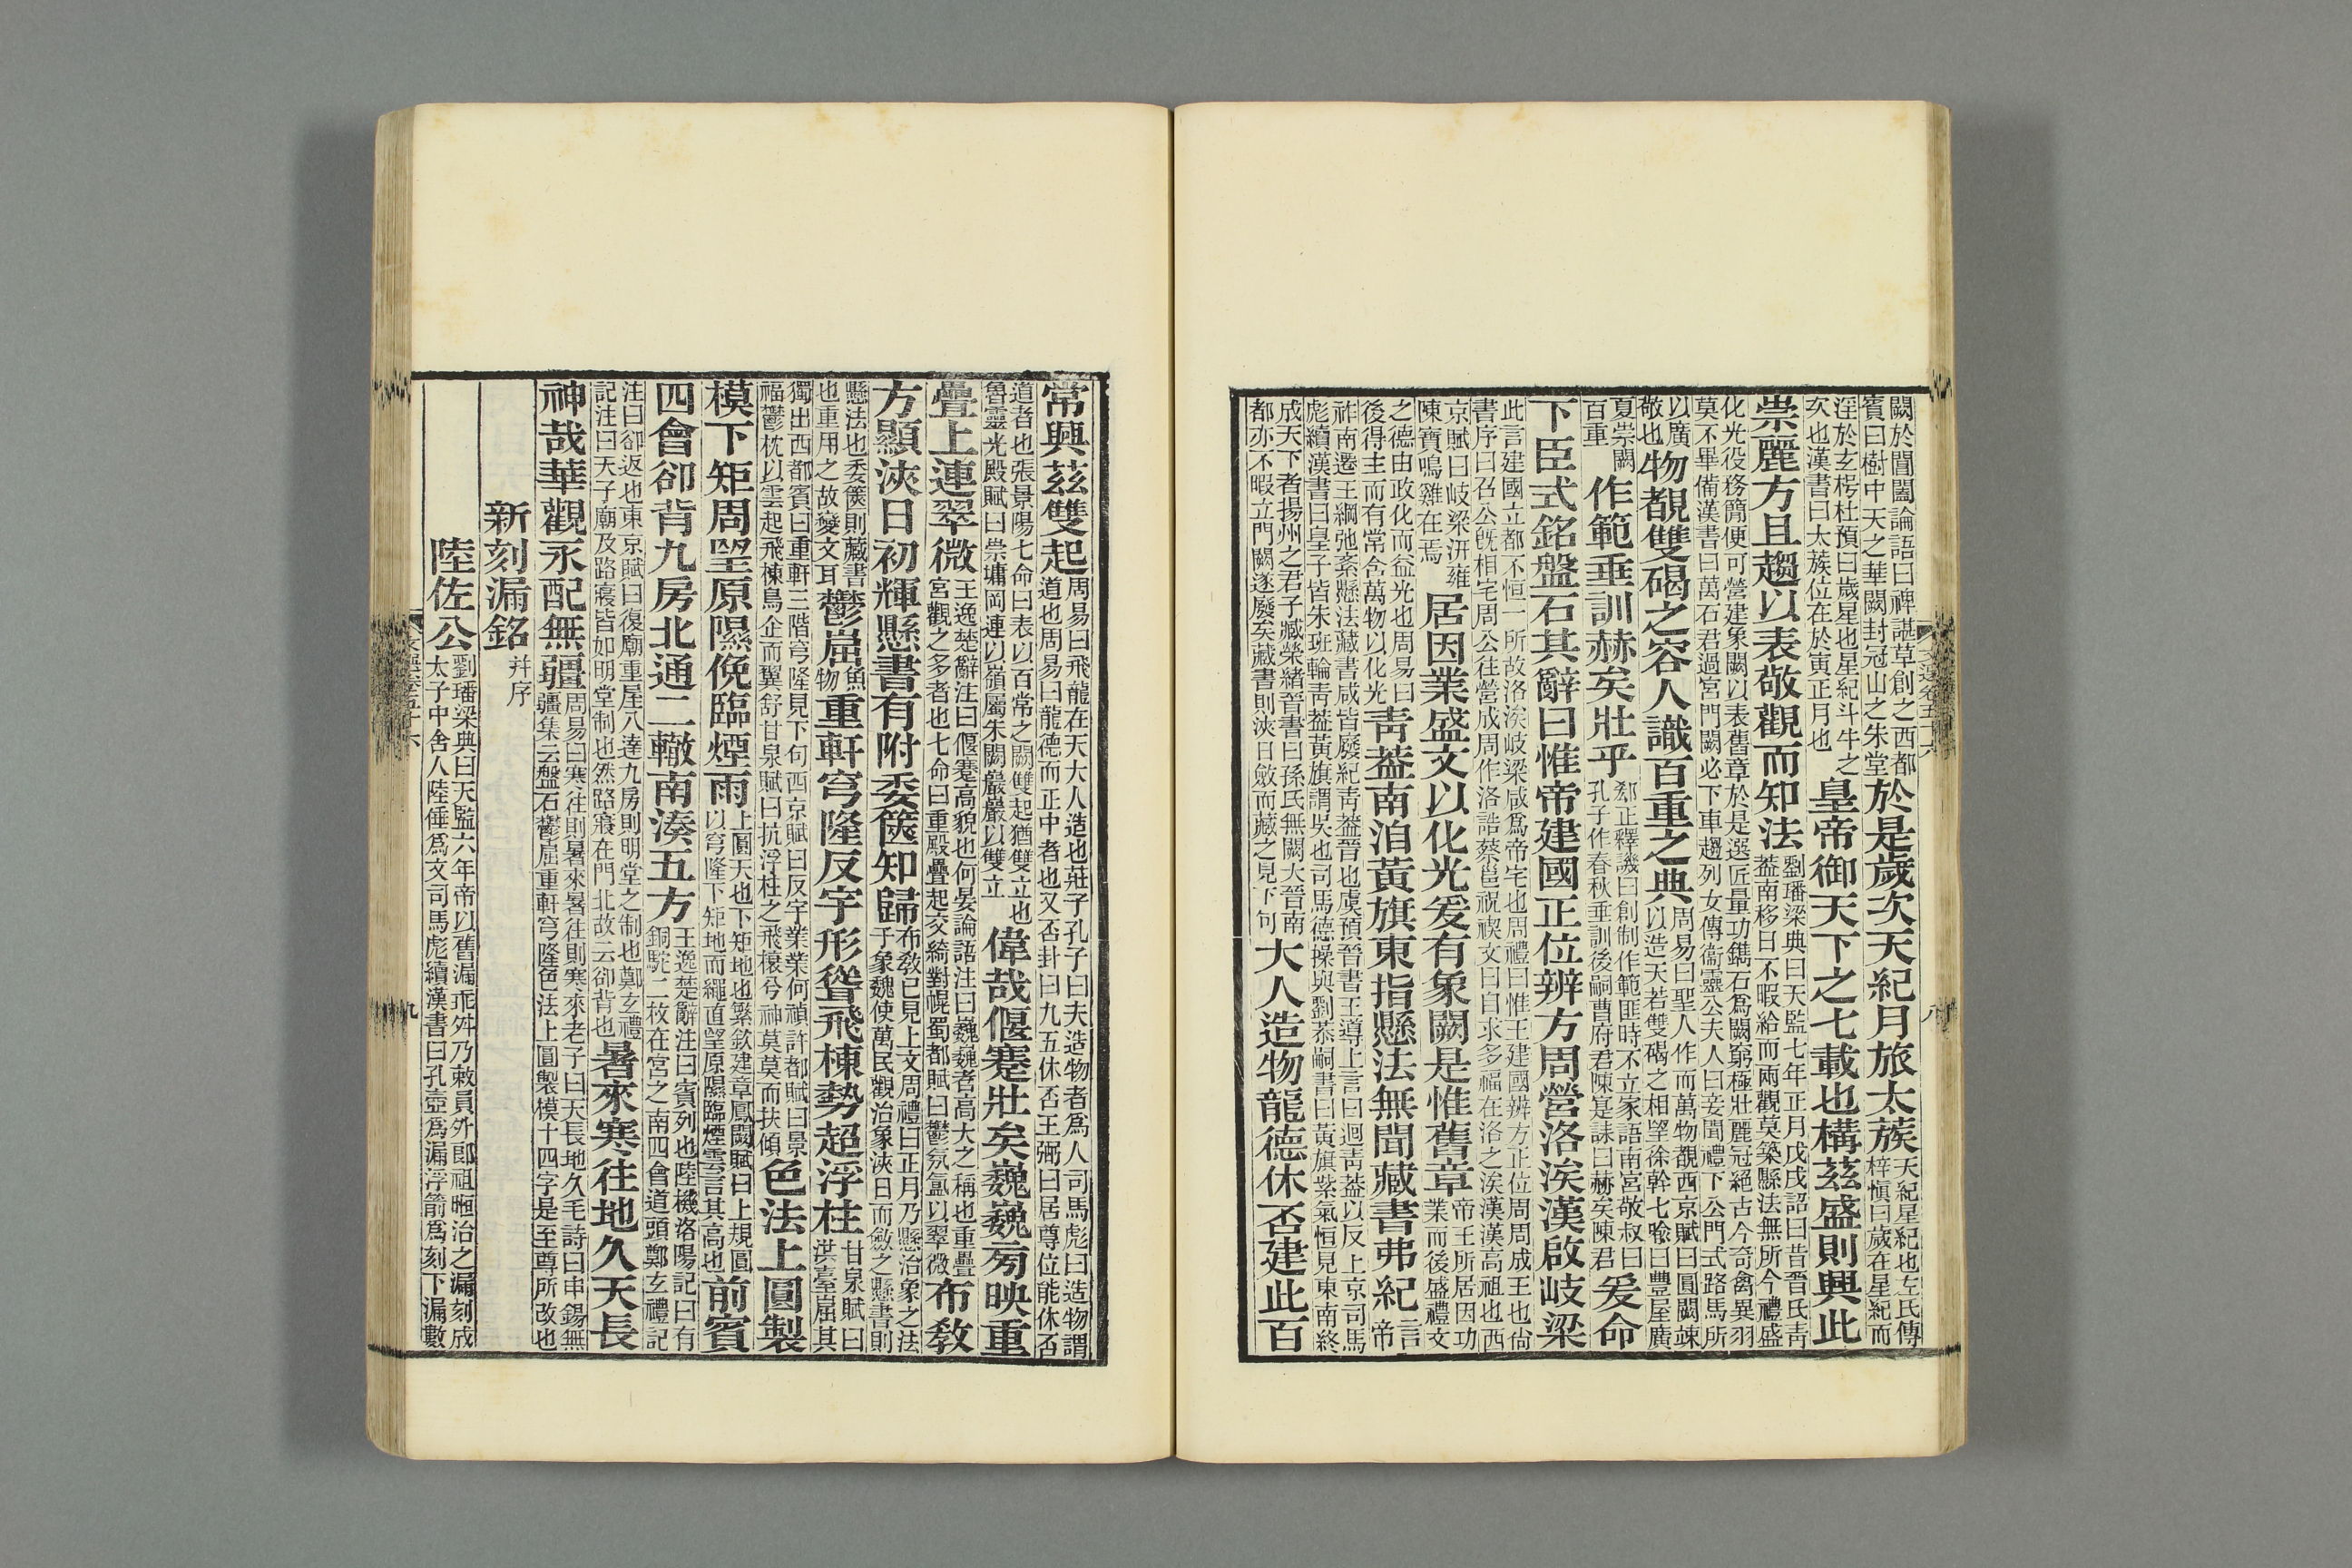 闕於閶闔論語曰裨諶草創之西都賓曰樹中天之華闕封冠山之朱堂於是歲次天紀月旅太蔟天紀星紀也左氏傳梓愼曰歲在星紀而
淫於玄枵杜預曰歲星也星紀斗牛之次也漢書曰太蔟位在於寅正月也皇帝御天下之七載也構茲盛則興此
崇麗方且趨以表敬觀而知法劉璠梁典曰天監七年正月戊戌詔曰昔晉氏靑葢南移日不暇給而兩觀莫築縣法無所今禮盛
化光役務簡便可營建象闕以表舊章於是選匠量功鐫石爲闕窮極壯麗冠絕古今奇禽異羽莫不畢備漢書曰萬石君過宮門闕必下車趨列女傳衞靈公夫人曰妾聞禮下公門式路馬所
以廣敬也物覩雙碣之容人識百重之典周易曰聖人作而萬物覩西京賦曰圓闕竦以造天若雙碣之相望徐幹七喩曰豐屋廣
夏崇闕百重作範垂訓赫矣壯乎郄正釋譏曰創制作範匪時不立家語南宮敬叔曰孔子作春秋垂訓後嗣曹府君陳寔誄曰赫矣陳君爰命
下臣式銘盤石其辭曰惟帝建國正位辨方周營洛涘漢啟岐梁
此言建國立都不恒一所故洛涘岐梁咸爲帝宅也周禮曰惟王建國辨方正位周周成王也尙書序曰召公旣相宅周公往營成周作洛誥蔡邕祝禊文曰自求多福在洛之涘漢漢高祖也西
京賦曰岐梁汧雍陳寶鳴雞在焉居因業盛文以化光爰有象闕是惟舊章帝王所居因功業而後盛禮文
之德由政化而益光也周易曰後得主而有常含萬物以化光靑葢南洎黃旗東指懸法無聞藏書弗紀言帝
祚南遷王綱弛紊懸法藏書咸皆廢紀靑葢晉也虞預晉書王導上言曰迴靑葢以反上京司馬彪續漢書曰皇子皆朱班輪靑葢黃旗謂吳也司馬德操與劉恭嗣書曰黃旗紫氣恒見東南終
成天下者揚州之君子臧榮緒晉書曰孫氏無闕大晉南都亦不暇立門闕遂廢矣藏書則浹日斂而藏之見下句大人造物龍德休否建此百
常興茲雙起周易曰飛龍在天大人造也莊子孔子曰夫造物者爲人司馬彪曰造物謂道也周易曰龍德而正中者也又否卦曰九五休否王弼曰居尊位能休否
道者也張景陽七命曰表以百常之闕雙起猶雙立也魯靈光殿賦曰崇墉岡連以嶺屬朱闕巖巖以雙立偉哉偃蹇壯矣巍巍旁映重
疊上連翠微王逸楚辭注曰偃蹇高貌也何晏論語注曰巍巍者高大之稱也重疊宮觀之多者也七命曰重殿疊起交綺對幌蜀都賦曰鬱氛氳以翠微布敎
方顯浹日初輝懸書有附委篋知歸布敎已見上文周禮曰正月乃懸治象之法于象魏使萬民觀治象浹日而斂之懸書則
懸法也委篋則藏書也重用之故變文耳鬱崫重軒穹隆反宇形聳飛棟勢超浮柱甘泉賦曰洪臺崫其
獨出西都賓曰重軒三階穹隆見下句西京賦曰反宇業業何禎許都賦曰景福鬱枕以雲起飛棟鳥企而翼舒甘泉賦曰抗浮柱之飛榱兮神莫莫而扶傾色法上圓製
模下矩周望原隰俛臨煙雨上圓天也下矩地也繁欽建章鳳闕賦曰上規圓以穹隆下矩地而繩直望原隰臨煙雲言其高也前賓
四會卻背九房北通二轍南湊五方王逸楚辭注曰賓列也陸機洛陽記曰有銅駝二枚在宮之南四會道頭鄭玄禮記
注曰卻返也東京賦曰復廟重屋八達九房則明堂之制也鄭玄禮記注曰天子廟及路寢皆如明堂制也然路寢在門北故云卻背也暑來寒往地久天長
神哉華觀永配無疆周易曰寒往則暑來暑往則寒來老子曰天長地久毛詩曰申錫無疆集云盤石鬱崫重軒穹隆色法上圓製模十四字是至尊所改也
新刻漏銘并序
陸佐公劉璠梁典曰天監六年帝以舊漏乖舛乃敕員外郎祖暅治之漏刻成太子中舍人陸倕爲文司馬彪續漢書曰孔壺爲漏浮箭爲刻下漏數